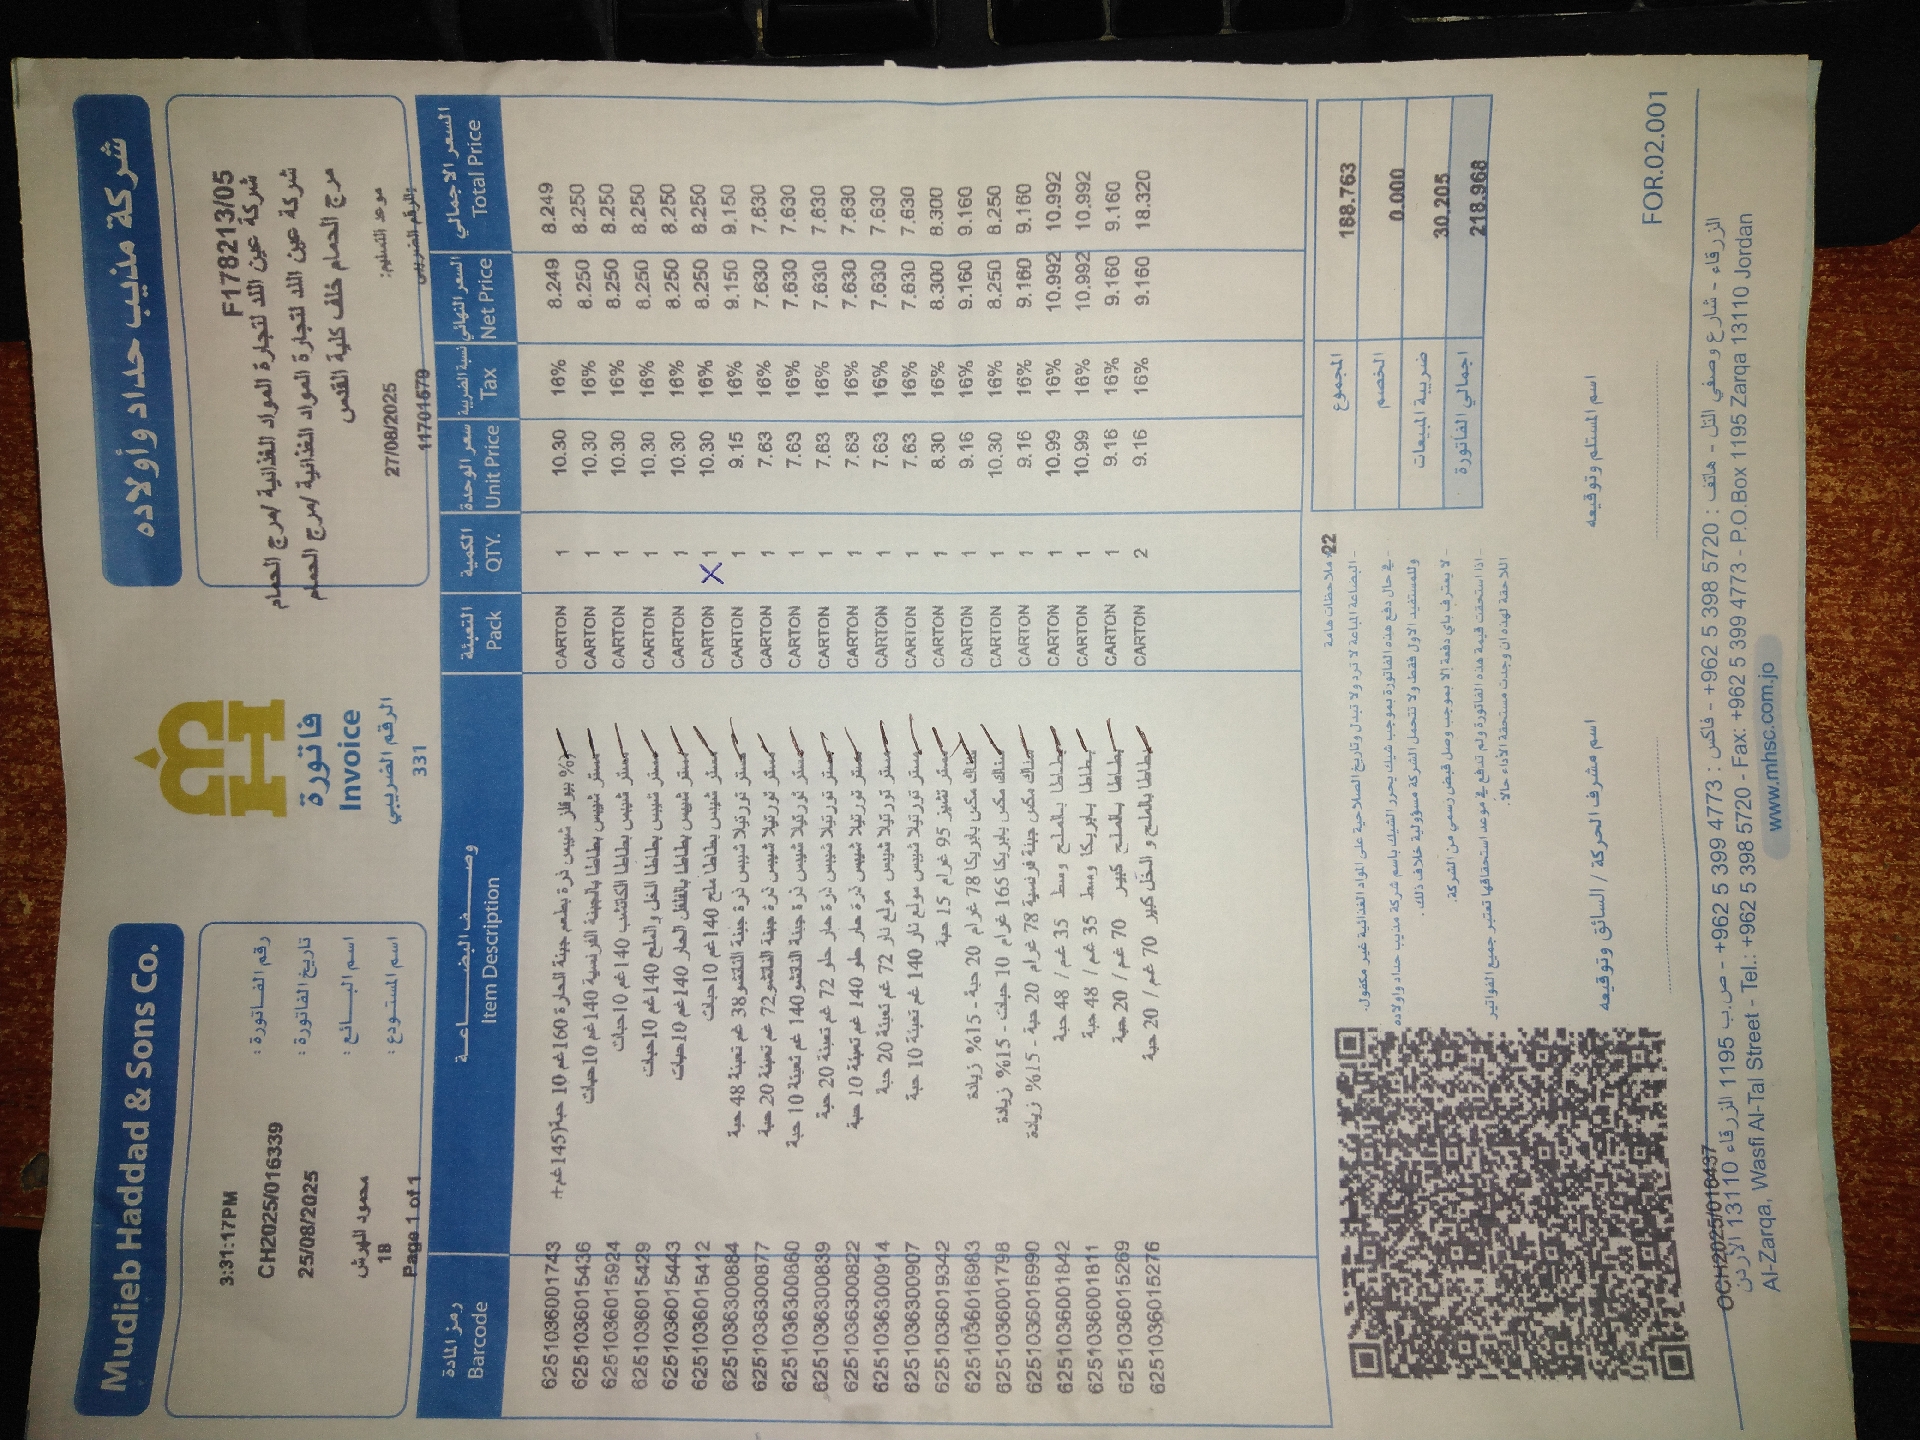 Mudieb Haddad & Sons Co.
شركة مذيب حداد وأولاده
فاتورة
Invoice
الرقم الضريبي
331
3:31:17PM
رقم الفاتورة : CH2025/016339
تاريخ الفاتورة : 25/08/2025
اسم البائع : محمود
اسم المستودع : 18
Page 1 of 1
F178213/05
شركة عين اللد لتجارة المواد الغذائية /مرج الحمام
شركة عين اللد لتجارة المواد الغذائية /مرج الحمام
مرج الحمام خلف كلية القدس
موعد التسليم: 27/08/2025
الرقم الضريبي 11701579
رمز المادة وصف البضاعة التعبئة الكمية سعر الوحدة نسبة الضريبة السعر النهائي السعر الاجمالي
Barcode Item Description Pack QTY. Unit Price Tax Net Price Total Price
6251036001743 بيوفلز شيبس ذرة بطعم جبنة الحارة 160غم 10 حبة(145غم+ CARTON 1 10.30 16% 8.249 8.249
6251036015436 مستر شيبس بطاطا بالجبنة الفرنسية 140غم 10حبات CARTON 1 10.30 16% 8.250 8.250
6251036015924 مستر شيبس بطاطا الكاتشب 140غم 10حبات CARTON 1 10.30 16% 8.250 8.250
6251036015429 مستر شيبس بطاطا الخل والملح 140غم 10حبات CARTON 1 10.30 16% 8.250 8.250
6251036015443 مستر شيبس بطاطا بالفلفل الحار 140غم 10حبات CARTON 1 10.30 16% 8.250 8.250
6251036015412 مستر شيبس بطاطا ملح 140غم 10حبات CARTON X 1 10.30 16% 8.250 8.250
6251036300884 مستر تورتيلا شيبس ذرة جبنة الناتشو 38 غم تعبئة 48 حبة CARTON 1 9.15 16% 9.150 9.150
6251036300877 مستر تورتيلا شيبس ذرة جبنة الناتشو 72 غم تعبئة 20 حبة CARTON 1 7.63 16% 7.630 7.630
6251036300860 مستر تورتيلا شيبس ذرة جبنة الناتشو 140 غم تعبئة 10 حبة CARTON 1 7.63 16% 7.630 7.630
6251036300839 مستر تورتيلا شيبس ذرة حار حلو 72 غم تعبئة 20 حبة CARTON 1 7.63 16% 7.630 7.630
6251036300822 مستر تورتيلا شيبس ذرة حار حلو 140 غم تعبئة 10 حبة CARTON 1 7.63 16% 7.630 7.630
6251036300914 مستر تورتيلا شيبس مولع نار 72 غم تعبئة 20 حبة CARTON 1 7.63 16% 7.630 7.630
6251036300907 مستر تورتيلا شيبس مولع نار 140 غم تعبئة 10 حبة CARTON 1 7.63 16% 7.630 7.630
6251036019342 مستر تشيز 95 غرام 15 حبة CARTON 1 8.30 16% 8.300 8.300
6251036016983 سناك مكس بابريكا 78 غرام 20 حبة - 15% زيادة CARTON 1 9.16 16% 9.160 9.160
6251036001798 سناك مكس بابريكا 165 غرام 10 حبات - 15% زيادة CARTON 1 10.30 16% 8.250 8.250
6251036016990 سناك مكس جبنة فرنسية 78 غرام 20 حبة - 15% زيادة CARTON 1 9.16 16% 9.160 9.160
6251036001842 بطاطا بالملح وسط 35 غم / 48 حبة CARTON 1 10.99 16% 10.992 10.992
6251036001811 بطاطا بابريكا وسط 35 غم / 48 حبة CARTON 1 10.99 16% 10.992 10.992
6251036015269 بطاطا بالملح كبير 70 غم / 20 حبة CARTON 1 9.16 16% 9.160 9.160
6251036015276 بطاطا بالملح و الخل كبير 70 غم / 20 حبة CARTON 2 9.16 16% 9.160 18.320
22
المجموع 188.763
الخصم 0.000
ضريبة المبيعات 30.205
اجمالي الفاتورة 218.968
ملاحظات هامة
- البضاعة المباعة لا ترد ولا تبدل وتاريخ الصلاحية على المواد الغذائية غير مكفول.
- في حال دفع هذه الفاتورة بموجب شيك يحرر الشيك باسم شركة مذيب حداد واولاده
وللمستفيد الاول فقط ولا تتحمل الشركة مسؤولية خلاف ذلك.
- لا يعترف باي دفعة إلا بموجب وصل قبض رسمي من الشركة.
- اذا استحقت قيمة هذه الفاتورة ولم تدفع في موعد استحقاقها تعتبر جميع الفواتير
اللاحقة لهذه ان وجدت مستحقة الأداء حالا.
اسم مشرف الحركة / السائق وتوقيعه
اسم المستلم وتوقيعه
FOR.02.001
OCH2025/016437
الزرقاء - شارع وصفي التل - هاتف : +962 5 398 5720 - فاكس : +962 5 399 4773 - ص.ب 1195 الزرقاء 13110 الأردن
Al-Zarqa, Wasfi Al-Tal Street - Tel.: +962 5 398 5720 - Fax: +962 5 399 4773 - P.O.Box 1195 Zarqa 13110 Jordan
www.mhsc.com.jo